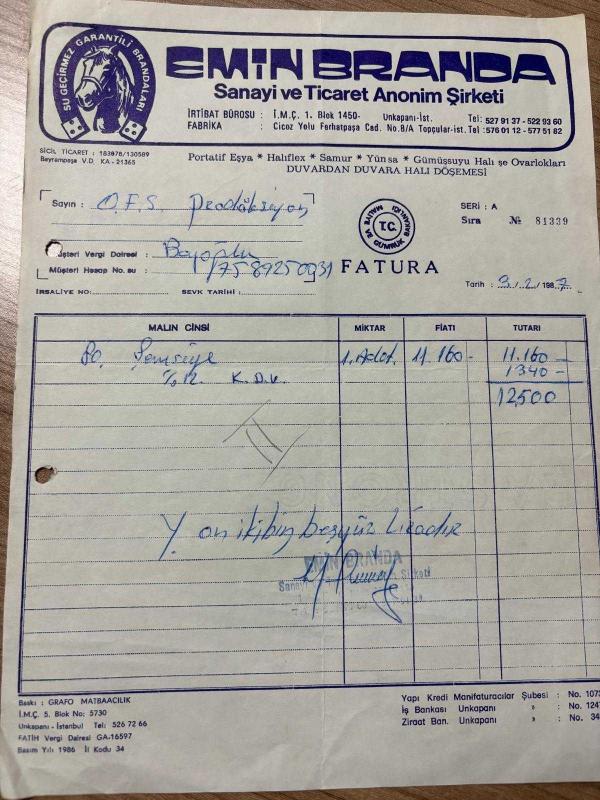 SU GEÇİRMEZ GARANTİLİ BRANDALARI
EMİN BRANDA
Sanayi ve Ticaret Anonim Şirketi
İRTİBAT BÜROSU : İ.M.Ç. 1. Blok 1450- Unkapanı-İst. Tel: 527 91 37 - 522 93 60
FABRİKA : Cicoz Yolu Ferhatpaşa Cad. No.8/A Topçular-ist. Tel: 576 01 12 - 577 51 82
SİCİL TİCARET : 183078/130589
Bayrampaşa V.D. KA - 21365
Portatif Eşya * Halıflex * Samur * Yünsa * Gümüşsuyu Halı şe Ovarlokları
DUVARDAN DUVARA HALI DÖŞEMESİ
Sayın : O.F.S. Prodüksiyon
T.C. MALİYE VE GÜMRÜK BAKANLIĞI
SERİ : A
Sıra № 81339
üşteri Vergi Dairesi : Beyoğlu
Müşteri Hesap No. su : 7589250031
FATURA
İRSALİYE NO: SEVK TARİHİ :
Tarih : 9/2/1987
MALIN CİNSİ MİKTAR FİATI TUTARI
80 Şemsiye 1. Adet. 11.160 - 11.160 -
% 12. K.D.V. 1340 -
12.500
Y. on ikibin beşyüz liradır
EMİN BRANDA
Sanayi Şirketi
Baskı : GRAFO MATBAACILIK
İ.M.Ç. 5. Blok No: 5730
Unkapanı - İstanbul Tel: 526 72 66
FATİH Vergi Dairesi GA-16597
Basım Yılı 1986 İl Kodu 34
Yapı Kredi Manifaturacılar Şubesi : No. 107
İş Bankası Unkapanı » : No. 124
Ziraat Ban. Unkapanı » : No. 34